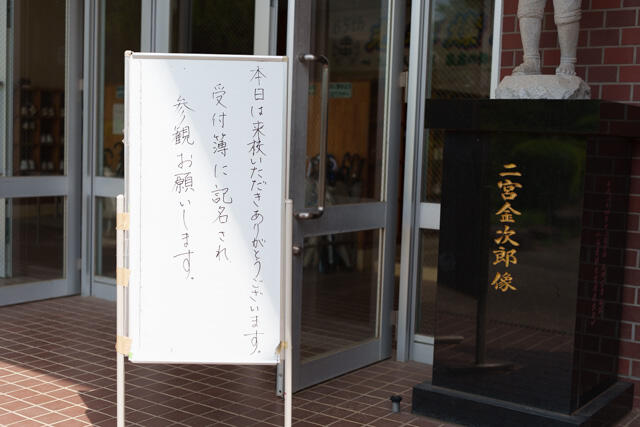 本日は来校いただきありがとうございます。
受付簿に記名され
参観お願いします。
二宮金次郎像